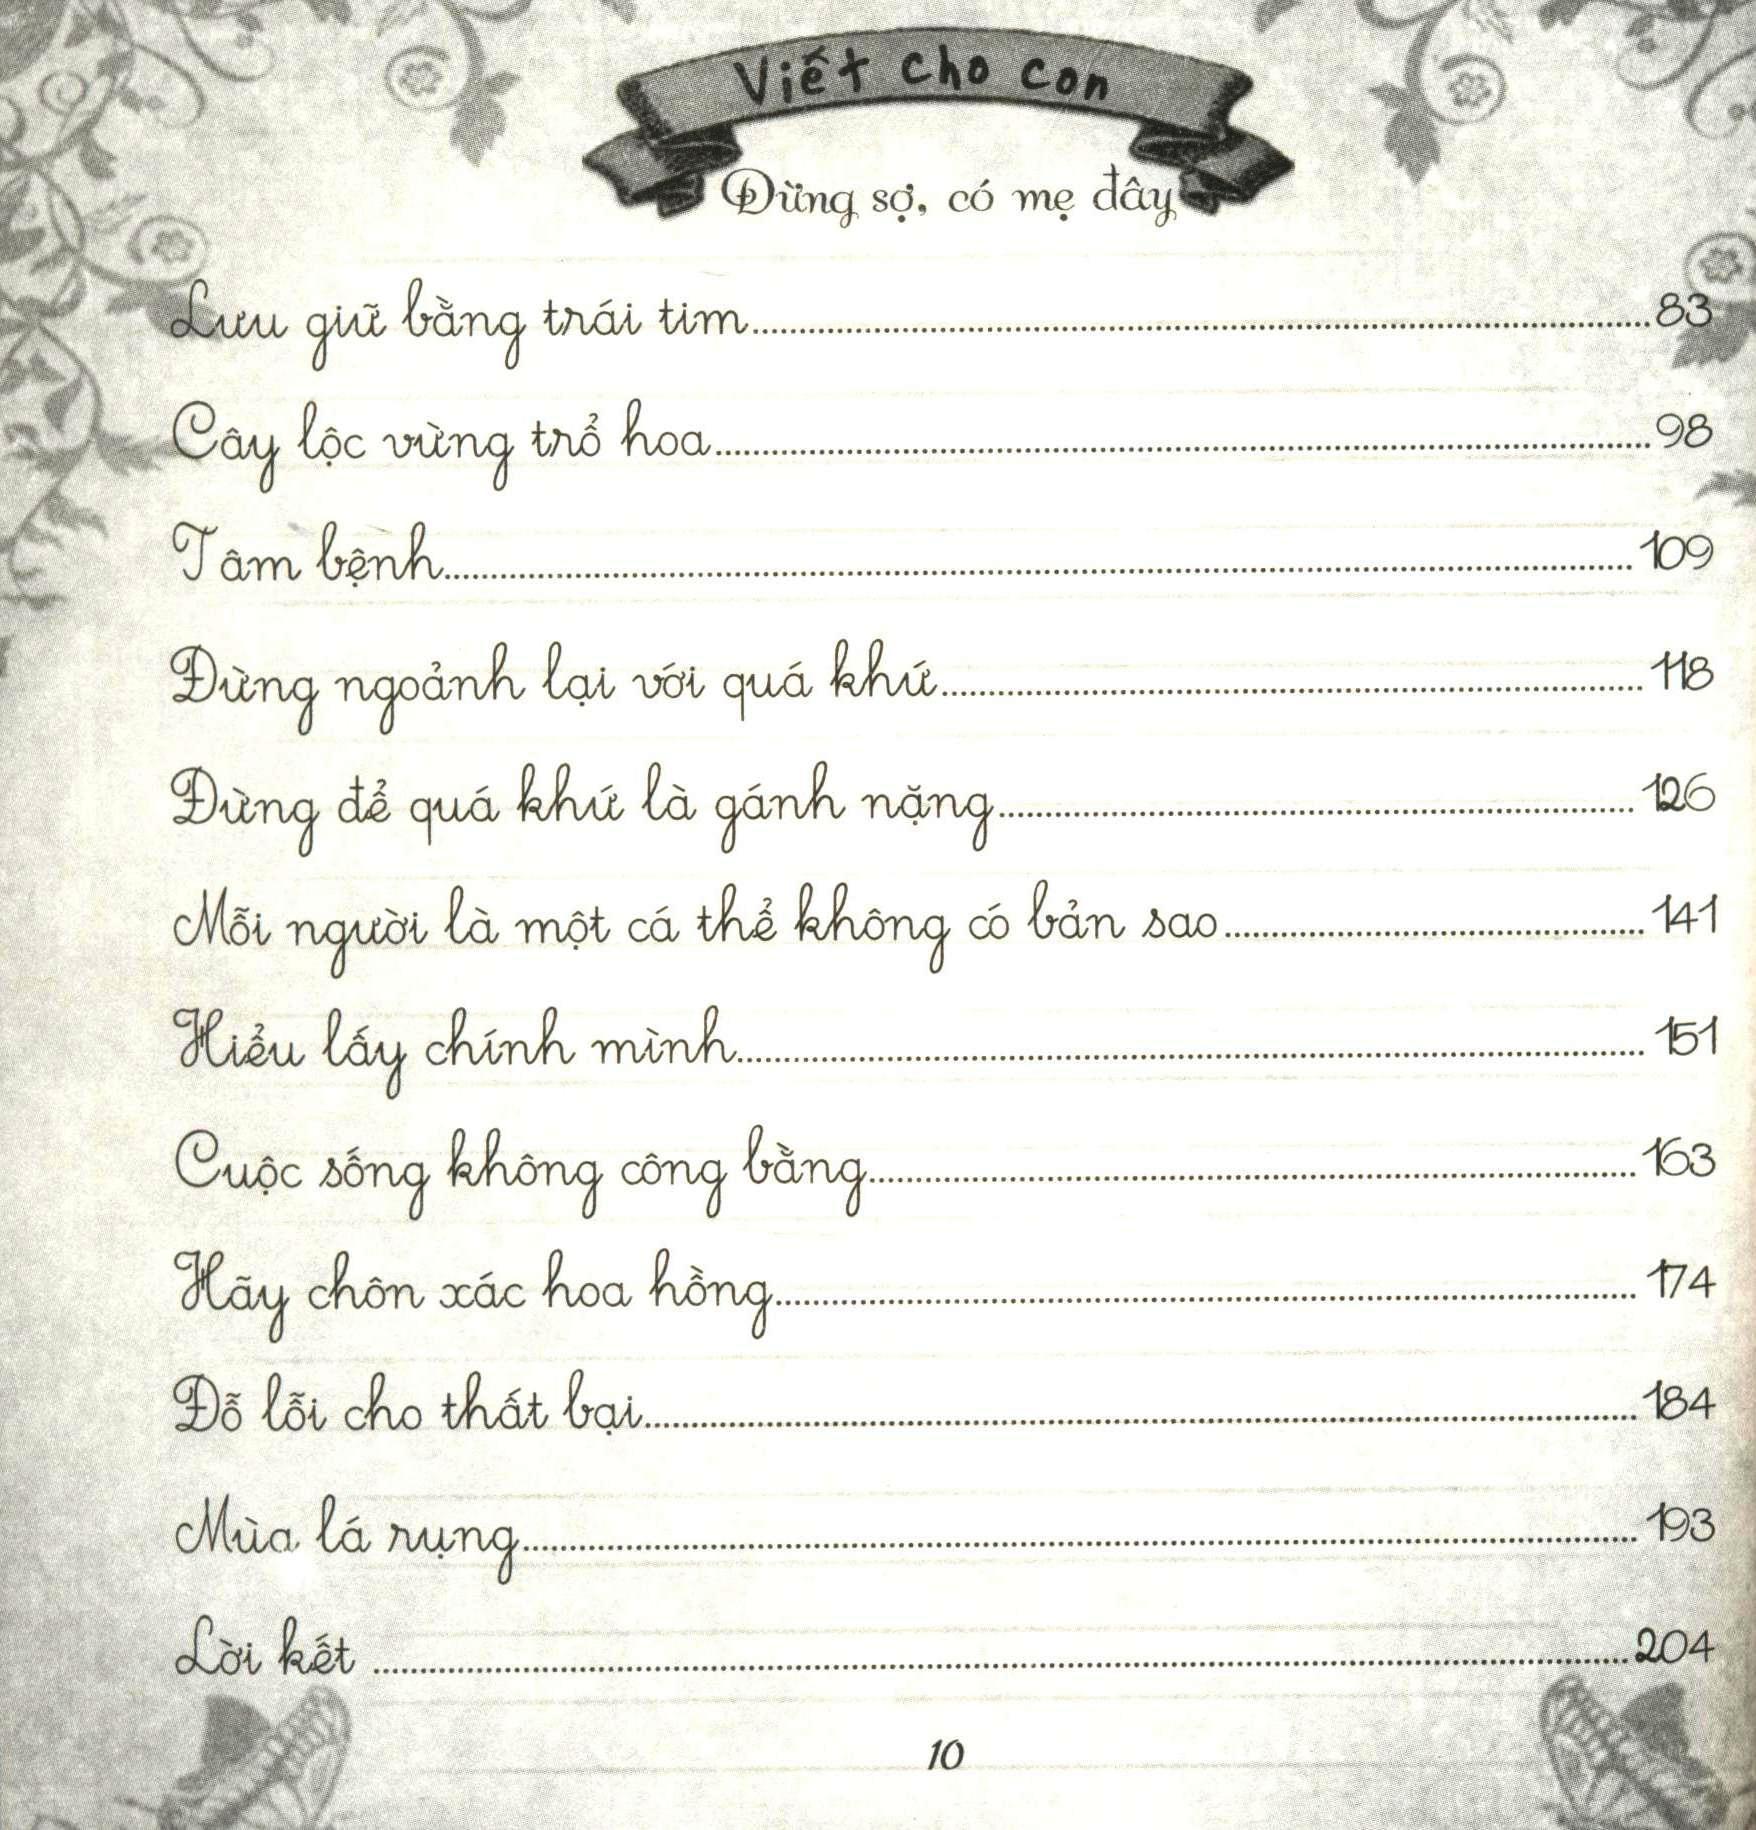 Viết cho con
Đừng sợ, có mẹ đây
Lưu giữ bằng trái tim....83
Cây lộc vừng trổ hoa....98
Tâm bệnh....109
Đừng ngoảnh lại với quá khứ....118
Đừng để quá khứ là gánh nặng....126
Mỗi người là một cá thể không có bản sao....141
Hiểu lấy chính mình....151
Cuộc sống không công bằng....163
Hãy chôn xác hoa hồng....174
Đỗ lỗi cho thất bại....184
Mùa lá rụng....193
Lời kết ....204
10